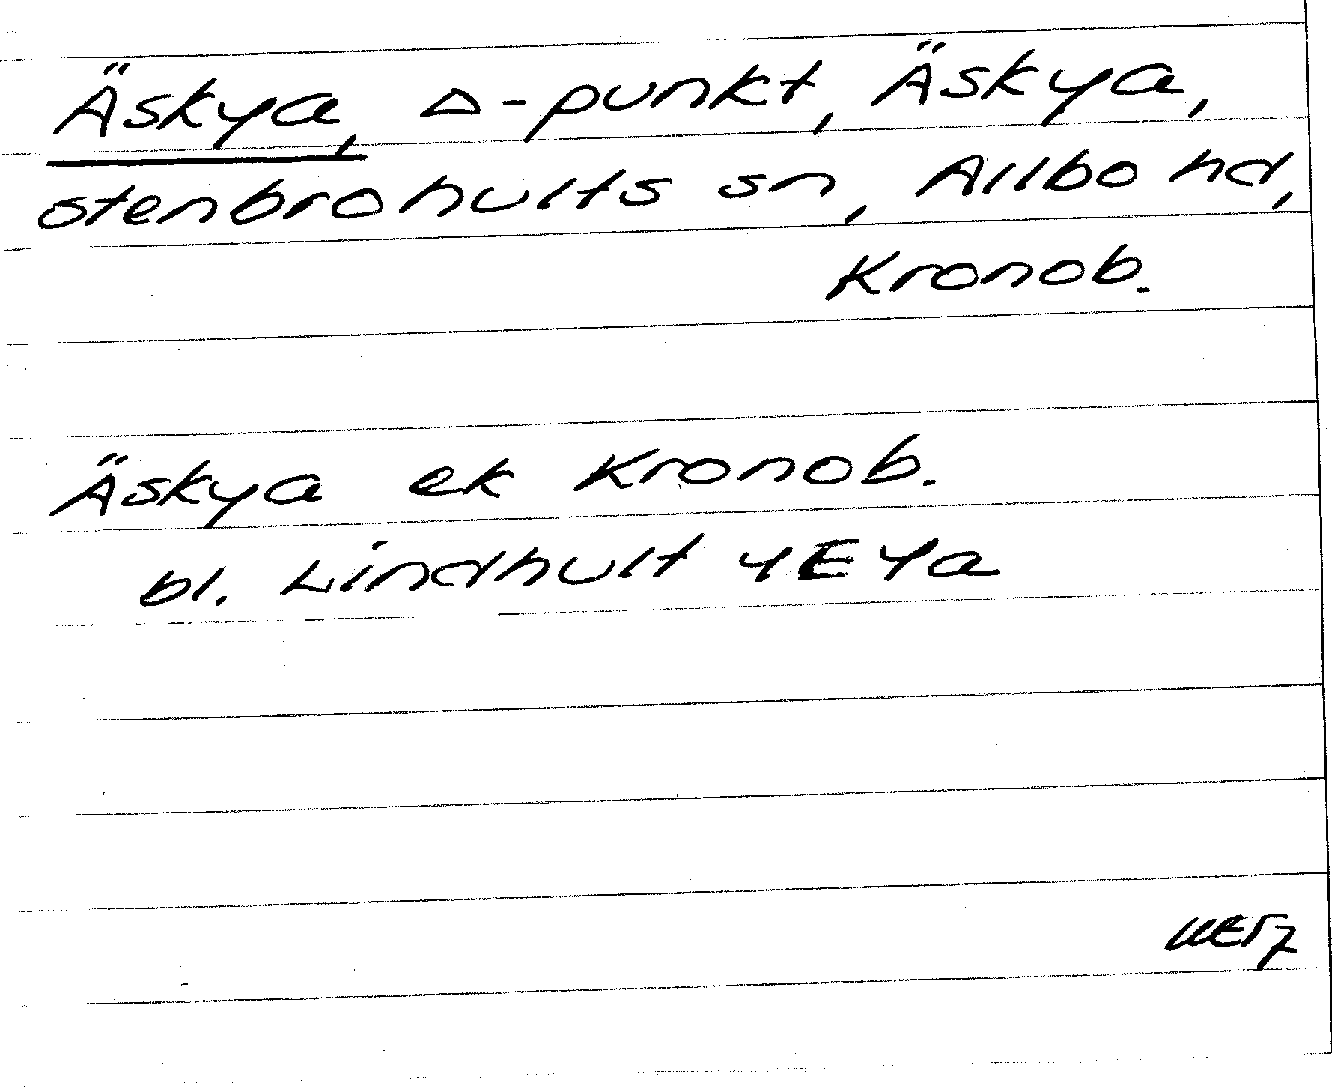 Äskya, △-punkt, Äskya,
Stenbrohults sn, Allbo hd,
Kronob.
Äskya ek Kronob.
bl. Lindhult 4E4a